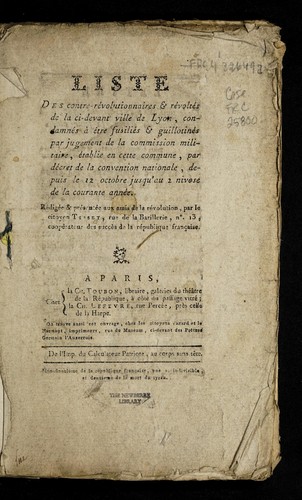 FRC4 22649
Case
FRC
25800
LISTE
Des contre-révolutionnaires & révoltés
de la ci-devant ville de Lyon, con-
damnés à être fusillés & guillotinés
par jugement de la commission mili-
taire, établie en cette commune, par
décret de la convention nationale, de-
puis le 12 octobre jusqu'au 2 nivose
de la courante année.
Rédigée & présentée aux amis de la révolution, par le
citoyen rue de la Barillerie, n°. 13,
coopérateur des succès de la république française.
A PARIS,
Chez
la Ce. TOUBON, libraire, galeries du théâtre
de la République, à côté du passage vitré;
la Ce. LEFEVRE, sur Percée, près celle
de la Harpe.
On trouve aussi cet ouvrage, chez les citoyens et le
imprimeurs, rue du ci-devant des Prêtres
Germain l'Auxerrois.
De l'Imp. du Calculateur Patriote, au corps sans tête.
de la république française, une & indivisible
et de la mort du tyran.
THE NEWBERRY
LIBRARY